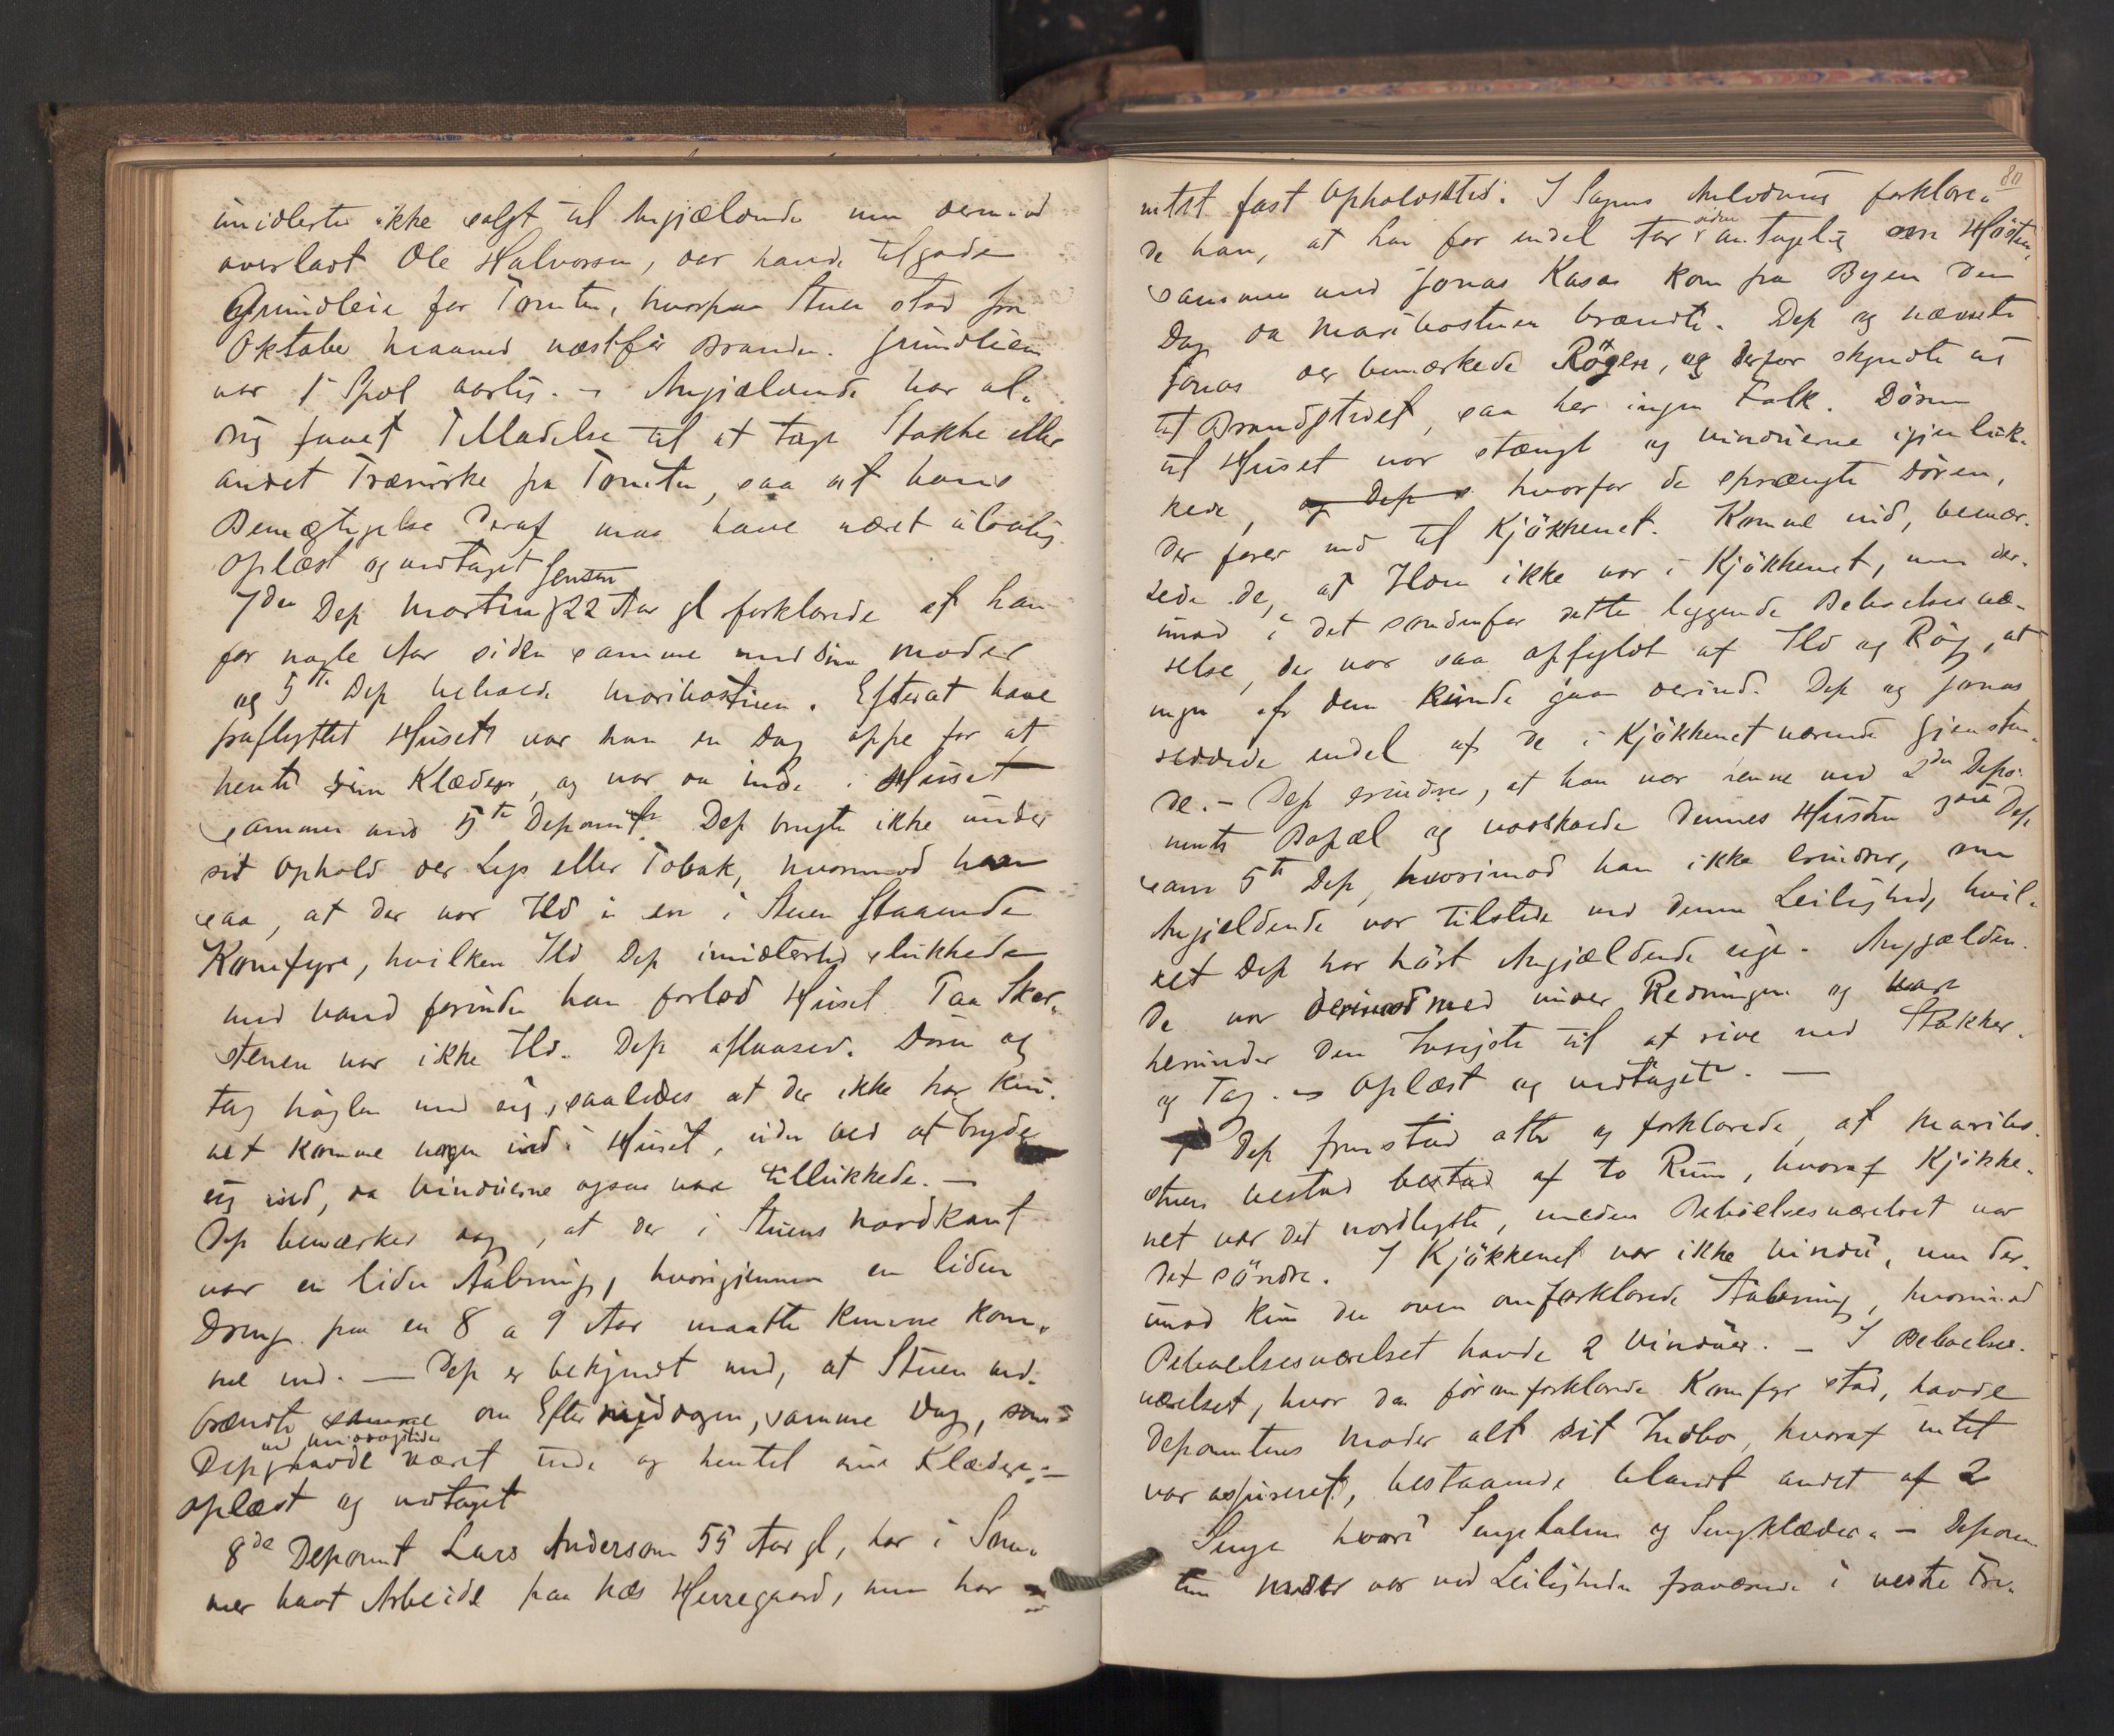 imidlertid ikke solgt til Angjældende men derimod
overladt Ole Halvorsen, der havde tilgode
Grundleie for Tomten, hvorpaa Stuen stod fra
Oktober Maaned næstfør Branden. Grundleien
var 1 Spdl aarlig. – Angjældende har al-
drig faaet Tilladelse til at tage Stokke eller
andet Trævirke fra Tomten, saa at hans
Bemægtigelse deraf maa have været ulovlig.
Oplæst og vedtaget
7de Dep Martin Jensen 22 Aar gl forklarede at han
for nogle Aar siden sammen med sin Moder
og 5te Dep beboede Maribostuen. Efterat have
fraflyttet Huset var han en Dag oppe for at
hente sine Klæder, og var da inde i Huset
sammen med 5te Deponent. Dep brugte ikke under
sit Ophold der Lys eller Tobak, hvorimod han
saa, at der var Ild i en i Stuen staaende
Komfyre, hvilken Ild Dep imidlertid slukkede
med Vand forinden han forlod Huset. Paa Skor-
stenen var ikke Ild. Dep aflaasede Døren og
tog Nøglen med sig, saaledes at der ikke har kun-
net komme nogen ind i Huset, uden ved at bryde
sig ind, da Vinduerne ogsaa vare tillukkede. –
Dep bemærker dog, at der i Stuens Nordkant
var en liden Aabning, hvorigjennem en liden
Dreng paa en 8 a 9 Aar maatte kunne kom-
me ind. — Dep er bekjendt med, at Stuen ned-
brændte samme om Eftermiddagen, samme Dag, som
Dep ved Middagstider havde været inde og hentet sine Klæder. –
Oplæst og vedtaget
8de Deponent Lars Anderson 55 Aar gl, har i Som-
mer havt Arbeide paa Næs Herregaard, men har
80
intet fast Opholdssted. I Sagens Anledning forklare-
de han, at han for endel Aar siden antagelig om Høsten,
sammen med Jonas Kasas kom fra Byen den
Dag da Maribostuen brændte. Dep og nævnte
Jonas der bemærkede Røgen, og derfor skyndte sig
til Brandstedet, saa her ingen Folk. Døren
til Huset var stængt og Vinduerne igjenluk-
kede, og Dep s hvorfor de sprængte Døren,
der fører ind til Kjøkkenet. Komne ind, bemær-
kede de, at Ilden ikke var i Kjøkkenet, men der-
imod i det søndenfor dette liggende Beboelsesvæ-
relse, der var saa opfyldt af Ild og Røg, at
ingen af dem kunde gaa derind. Dep og Jonas
reddede endel af de i Kjøkkenet værende Gjenstan-
de. – Dep erindrer, at han var henne ved 2den Depo-
nents Bopæl og varskoede dennes Hustru 3die Dep
samt 5te Dep, hvorimod han ikke erindrer, om
Angjældende var tilstede ved denne Leilighed, hvil-
ket Dep har hørt Angjældende sige. Angjælden-
de var derimod med under Redningen og var
herunder den ivrigste til at rive ned Stokker
og Tag. – Oplæst og vedtaget. —
7 Dep fremstod atter og forklarede, at Maribo-
stuen bestod bestod af to Rum, hvoraf Kjøkke-
net var det nordligste, medens Beboelsesværelset var
det søndre. I Kjøkkenet var ikke Vindu, men der-
imod kun den oven omforklarede Aabning, hvorimod
Beboelsesværelset havde 2 Vinduer. – I Beboelses-
værelset, hvor den før omforklarede Komfyr stod, havde
Deponentens Moder alt sit Indbo, hvoraf intet
var assureret, bestaaende blandt andet af 2
Senge hvori Sengehalm og Sengklæder. – Deponen-
tens Moder var ved Leiligheden fraværende i